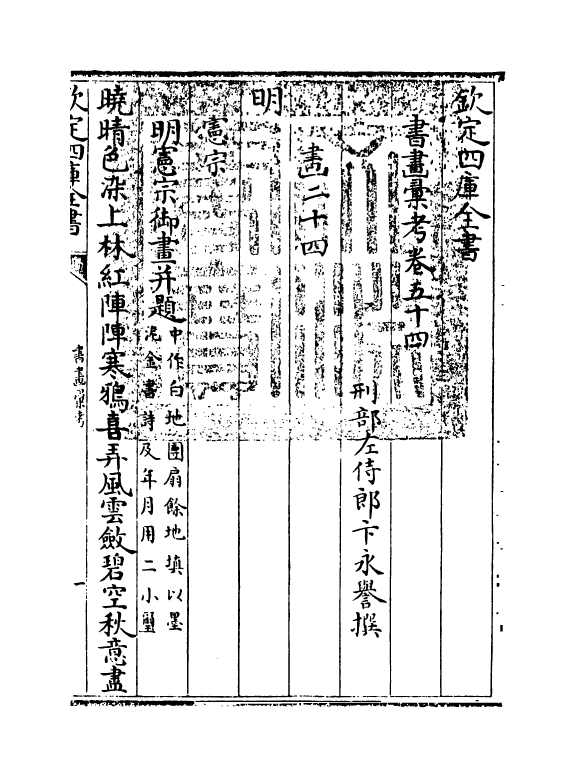 欽定四庫全書
書畫彙考卷五十四
刑部左侍郎卞永譽撰
畫二十四
明
憲宗
明憲宗御畫并題中作白地團扇餘地填以墨
泥金書詩及年月用二小璽
曉晴色染上林紅陣陣寒鴉喜弄風雲斂碧空秋意盡
欽定四庫全書
書畫彙考
一